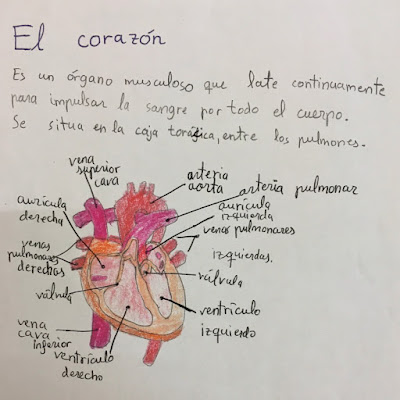 El corazón
Es un órgano musculoso que late continuamente
para impulsar la sangre por todo el cuerpo.
Se situa en la caja torácica, entre los pulmones.
vena
superior
cava
arteria
aorta
arteria pulmonar
aurícula
derecha
aurícula
izquierda
venas pulmonares
izquierdas.
venas
pulmonares
derechas
válvula
válvula
ventrículo
izquierdo
vena
cava
inferior
ventrículo
derecho